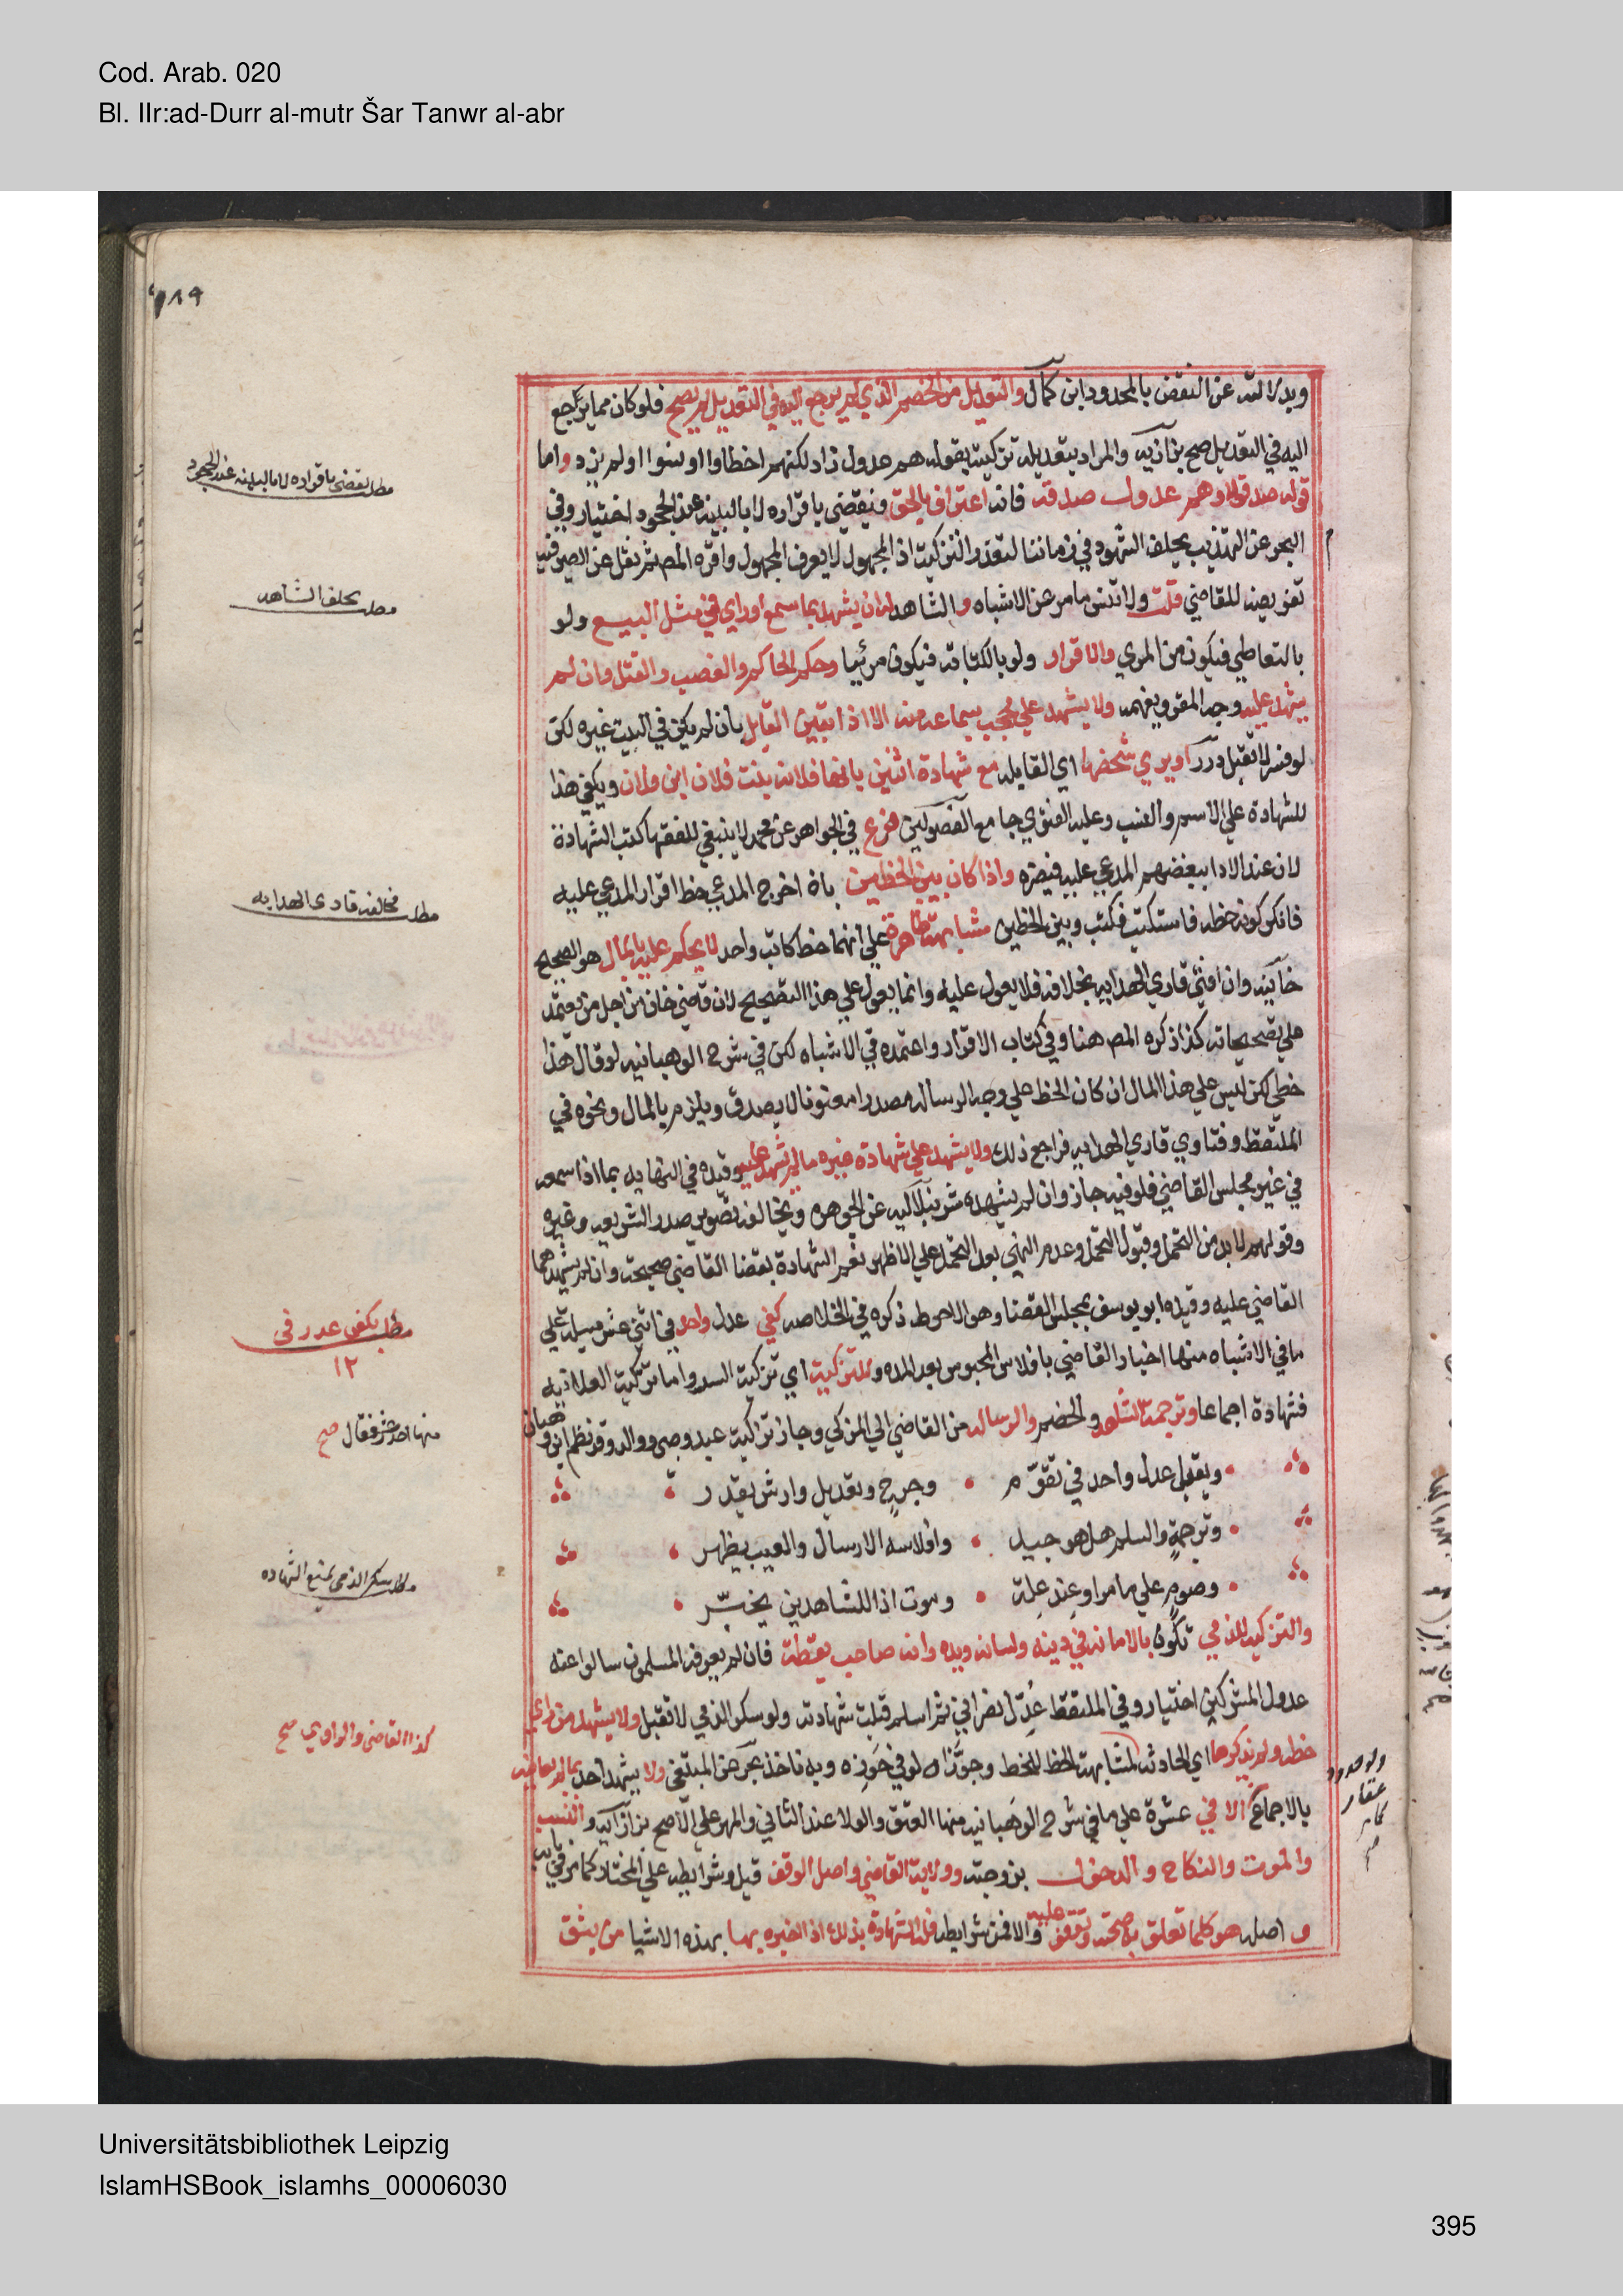 Cod. Arab. 020
Bl. IIr:ad-Durr al-mutr Šar Tanwr al-abr
وبدلالته عن النقض بالمحدود ابن كمال والتعديل من الخصم الذي لم يرجع اليه في التعديل لم يصح فلو كان ممايرجع
اليه في التعديل صح بزازيه والمراد بتعديله تزكيته بقوله هم عدول زاد لكنهم اخطاوا او نسوا اولم يزد واما
قوله صدقوا او هم عدول صدقه فانه اعتراف بالحق ويقضي باقراره لا بالبينه عند الجحود اختيار وفي
البحر عن التهذيب يحلف الشهود في زماننا لتعذر التزكيه اذ المجهول لا يعرف المجهول واقره المص ثم نقل عن الصيرفيه
تفويضه للقاضي قلت ولا تنس ما مر عن الاشباه والشاهد له ان يشهد بما سمع او راي في مثل البيع ولو
بالتعاطي فيكون من المري والاقرار ولو بالكتابة فيكون مرئيا وحكم الحاكم والغصب والقتل وان لم
يشهد عليه وجه المقر ويفهمه ولا يشهد علي محجب بسماعه منه الا اذا تبين القايل بان لم يكن في البيت غيره لكن
لو فسر لا تقبل درر او يري شخصها اي القايله مع شهادة اثنين بانها فلانه بنت فلان ابن فلان ويكفي هذا
للشهادة علي الاسم والنسب وعليه الفتوي جامع الفصولين فرع في الجواهر عن محمد لا ينبغي للفقها كتب الشهادة
لان عند الادا يبغضهم المدعي عليه فيضره واذا كان بين الخطين بان اخرج المدعي خط اقرار المدعي عليه
فانكر كونه خطه فاستكتب فكتب وبين الخطين مشابهة ظاهرة علي انهما خط كاتب واحد لا يحكم عليه بالمال هو الصحيح
خانيه وان افتي قاري الهدايه بخلافه فلا يعول عليه وانما يعول علي هذا التصحيح لان قاضي خان من اجل من يعتمد
علي تصحيحاته كذا ذكره المص هنا وفي كتاب الاقرار واعتمده في الاشباه لكن في شرح الوهبانيه لو قال هذا
خطي لكن ليس علي هذا المال ان كان الخط علي وجه الرساله مصدرا معنونا لا يصدق ويلزم بالمال ونحوه في
الملتقط وفتاوي قاري الهدايه فراجع ذلك ولا يشهد علي شهادة غيره مالم يشهد عليه وقيده في النهايه بما اذا سمعه
في غير مجلس القاضي فلو فيه جاز وان لم يشهده شرنبلاليه عن الجوهره ويخالفه تصوير صدر الشريعه وغيره
وقولهم لابد من التحمل وقبول التحمل وعدم النهي بعد التحمل علي الاظهر نعم الشهادة بقضا القاضي صحيحه وان لم يشهدهما
القاضي عليه وقيده ابو يوسف بمجلس القضا وهو الاحوط ذكره في الخلاصه كفي عدل واحد في اثني عشر مسيله علي
ما في الاشباه منها اخبار القاضي بافلاس المحبوس بعد المده وللتزكية اي تزكية السر واما تزكية العلانيه
فشهادة اجماعا وترجمة الشاهد والخصم والرساله من القاضي الي المزكي وجاز تزكية عبد وصبي ووالد وقد نظم ابن وهبان
ويقبل عدل واحد في تقوم وجرح وتعديل وارش يقدر
وترجمة والسلم هل هو جيد وافلاسه الارسال والعيب يظهر
وصوم علي ما مر او عند علة وموت اذا للشاهدين يخبر
والتزكيه للذمي تكون بالامانه في دينه ولسانه ويده وانه صاحب يقظة فان لم يعرفه المسلمون سالوا عنه
عدول المشركين اختيار وفي الملتقط عدل نصراني ثم اسلم قبلت شهادته ولو سكر الذمي لا تقبل ولا يشهد من راي
خطه ولم يذكرها اي الحادثه لمشابهة الخط للخط وجوزاه لو في حوزه وبه ناخذ بحر عن المبتغي ولا يشهد احد بما لم يعاينه
بالاجماع الا في عشرة علي ما في شرح الوهبانيه منها العتق والولا عند الثاني والمهر علي الاصح بزازيه والنسب
والموت والنكاح والدخول بزوجته وولاية القاضي واصل الوقف قيل وشرايطه علي المختار كما مر في بابه
و اصله هو كلما تعلق به صحته وتوقف عليه والا فمن شرايطه فله الشهادة بذلك اذا اخبره بها بهذه الاشيا من يثق
مطلب يقضي باقراره لا بالبينه عند الجحود
مطلب يحلف الشاهد
مطلب مخالفة قاري الهدايه
مطلب يكفي عدل في
١٢
صح
مطلب سكر الذمي يمنع الشهاده
كذا القاضي والراوي صح
Universitätsbibliothek Leipzig
IslamHSBook_islamhs_00006030
395